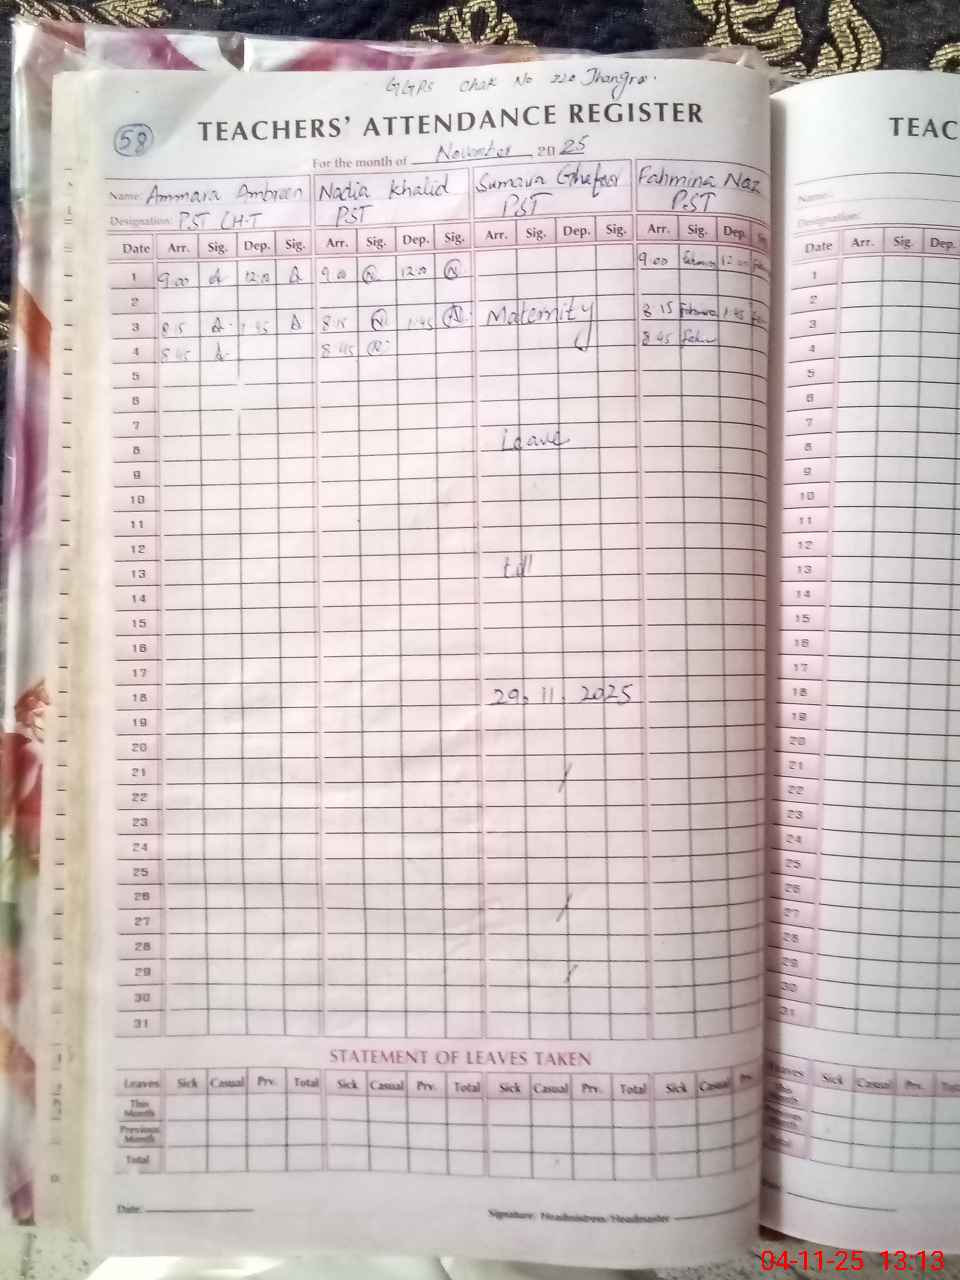 GGPS Chak No 220 Jhangra.
58
TEACHERS' ATTENDANCE REGISTER
For the month of November 2025
Name: Ammara Ambreen Nadia Khalid Sumaira Ghafoor Fahmina Naz
Designation: PST PST PST PST
Date Arr. Sig. Dep. Sig. Arr. Sig. Dep. Sig. Arr. Sig. Dep. Sig. Arr. Sig. Dep.
1 9:00 A 12:00 A 9:00 N 12:00 N 9:00 12:00
2
3 8:15 A 1:45 A 8:15 N 1:45 N Maternity 8:15 1:45
4 8:45 A 8:45 N 8:45
5
6
7
8 Leave
9
10
11
12
13 till
14
15
16
17
18 29.11.2025
19
20
21
22
23
24
25
26
27
28
29
30
31
STATEMENT OF LEAVES TAKEN
Leaves Sick Casual Prv. Total Sick Casual Prv. Total Sick Casual Prv. Total Sick Casual Prv.
This Month
Previous Month
Total
Date:
Signature: Headmistress/Headmaster
TEAC
Name:
Designation:
Date Arr. Sig. Dep.
1
2
3
4
5
6
7
8
9
10
11
12
13
14
15
16
17
18
19
20
21
22
23
24
25
26
27
28
29
30
31
Leaves Sick Casual Prv.
This Month
Previous Month
Total
04-11-25 13:13